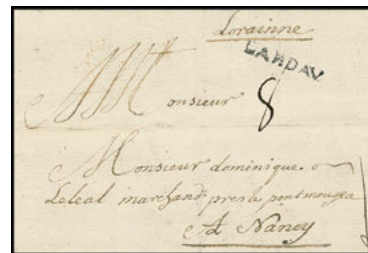 Lorainne
LANDAU
A Monsieur
8
Monsieur dominique
Leleal marchand pres le pont mougea
A Nancy